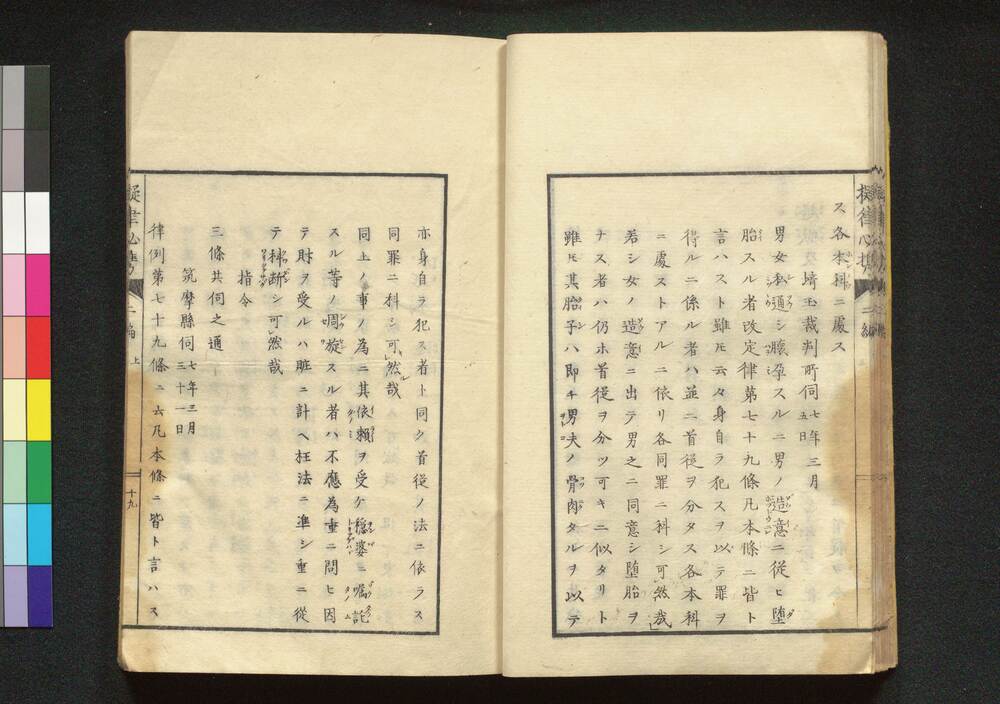 ス各本科ニ處ス
埼玉裁判所伺 七年三月五日
男女私通シ懷孕スルニ男ノ造意ニ從ヒ堕
胎スル者改定律第七十九條凡本條ニ皆ト
言ハスト雖𪜈云々身自ラ犯スヲ以テ罪ヲ
得ルニ係ル者ハ並ニ首從ヲ分タス各本科
ニ處ストアルニ依リ各同罪ニ科シ可然哉
若シ女ノ造意ニ出テ男之ニ同意シ堕胎ヲ
ナス者ハ仍ホ首從ヲ分ツ可キニ似タリト
雖𪜈其胎子ハ即チ男夫ノ骨肉タルヲ以テ
亦身自ラ犯ス者ト同ク首從ノ法ニ依ラス
同罪ニ科シ可然哉
同上ノ事ノ為ニ其依頼ヲ受ケ穏婆ニ囑託
スル等ノ周旋スル者ハ不應為重ニ問ヒ因
テ財ヲ受ルハ贓ニ計ヘ枉法ニ準シ重ニ從
テ擬断シ可然哉
指令
三條共伺之通
筑摩縣伺 七年三月三十一日
律例第七十九條ニ云凡本條ニ皆ト言ハス
二編 上
十九